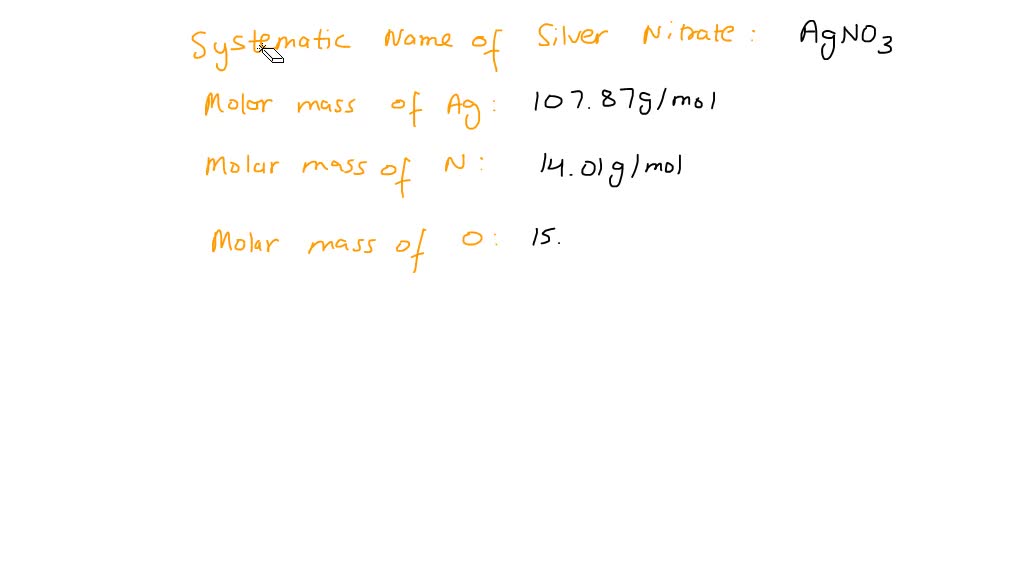 Systematic Name of Silver Nitrate: AgNO3
Molar mass of Ag: 107.87g/mol
Molar mass of N: 14.01g/mol
Molar mass of O: 15.